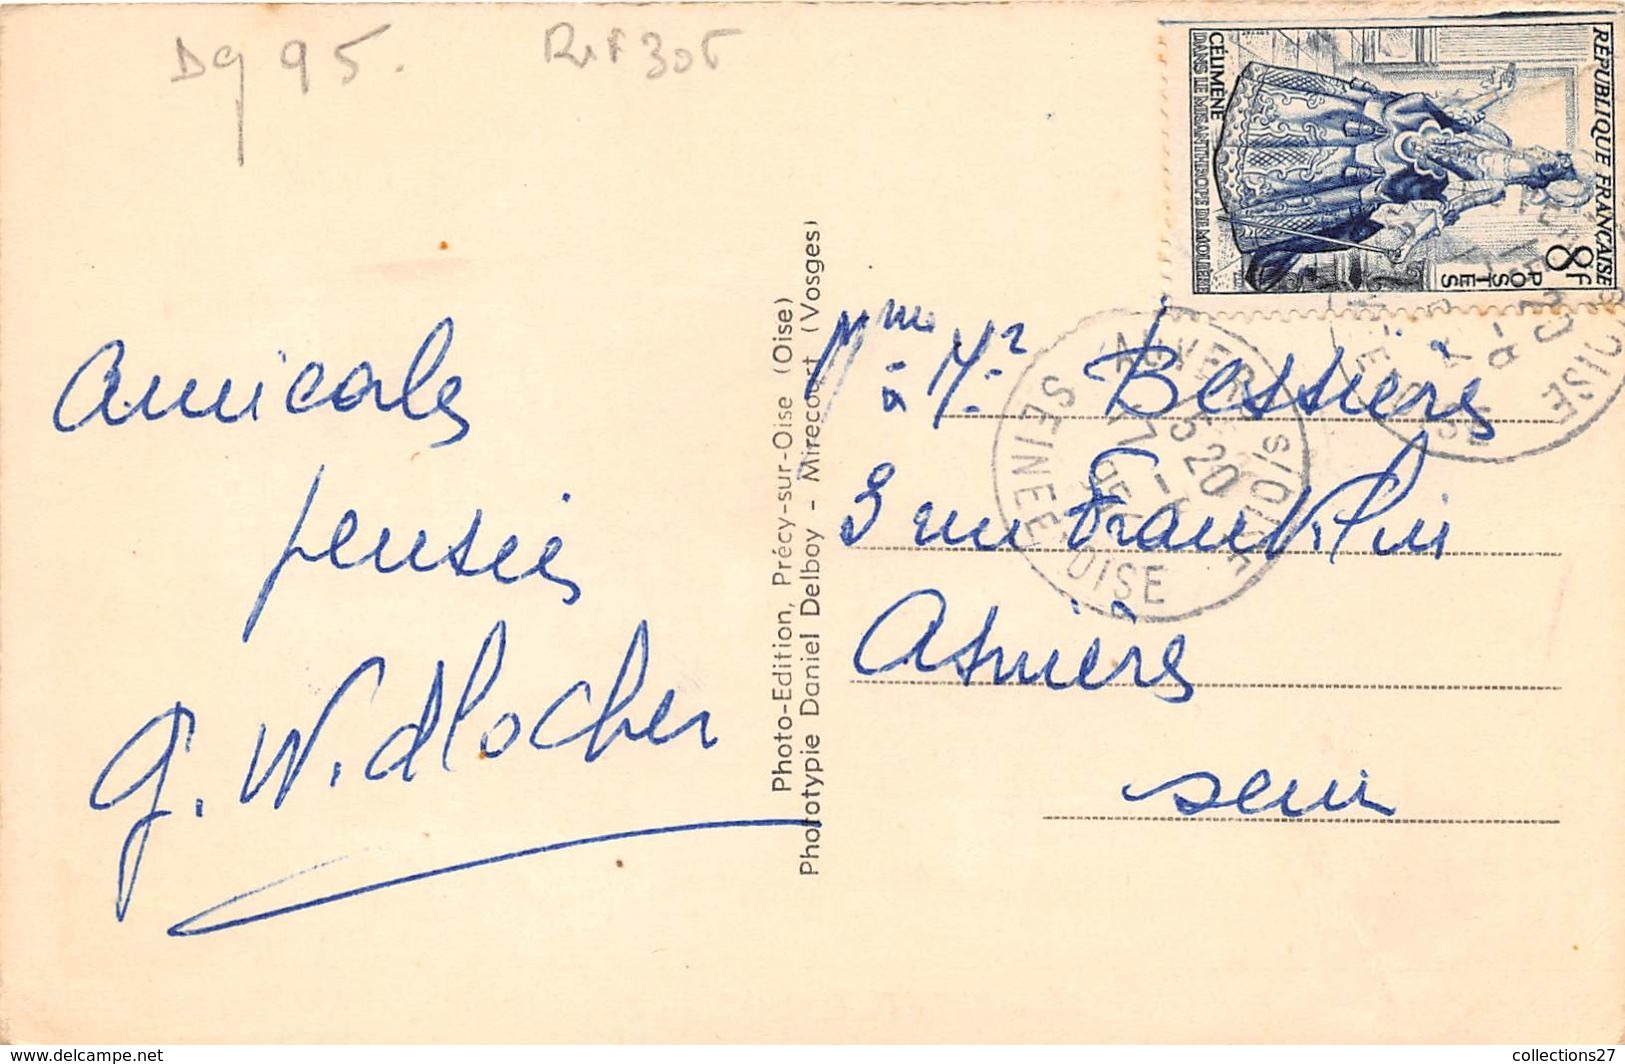 Dg 95.
Ref 306
RÉPUBLIQUE FRANÇAISE
8F
POSTES
CÉLIMÈNE
DANS LE MISANTHROPE DE MOLIÈRE
Amicales
pensées
G. Widlocher
Photo-Edition, Précy-sur-Oise (Oise)
Phototypie Daniel Delboy - Mirecourt (Vosges)
Mme & Mr Bessières
3 rue Franklin
Asnières
Seine
AUVERS S/OISE
15 20
SEINE ET OISE
www.delcampe.net
collections27